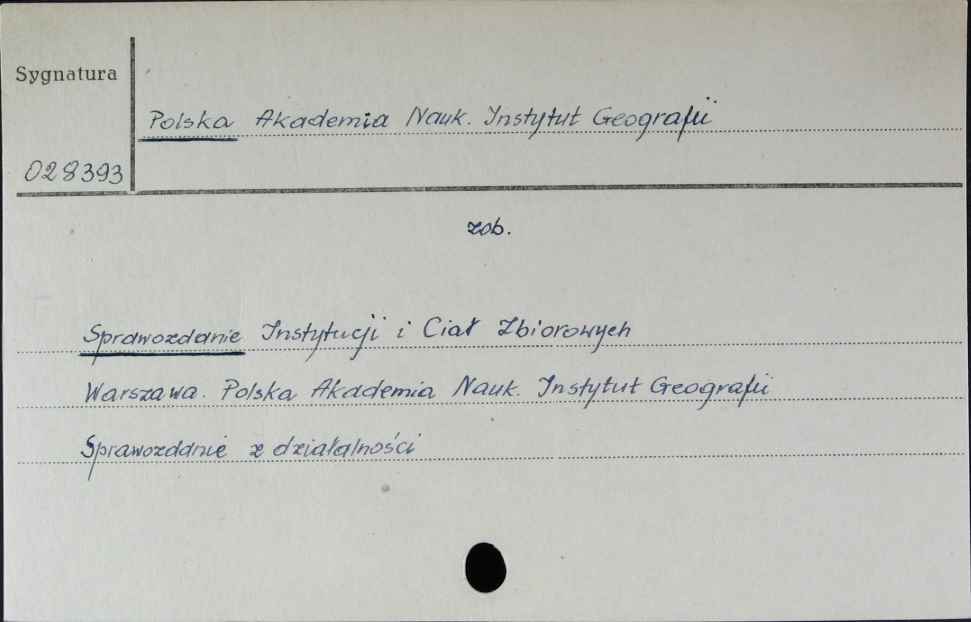 Sygnatura
Polska Akademia Nauk. Instytut Geografii
028393
zob.
Sprawozdanie Instytucji i Ciał Zbiorowych
Warszawa. Polska Akademia Nauk. Instytut Geografii
Sprawozdanie z działalności